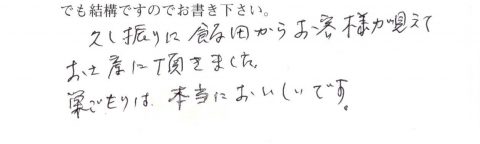 でも結構ですのでお書き下さい。
久し振りに飯田からお客様が見えて
お土産に頂きました。
巣ごもりは、本当においしいです。